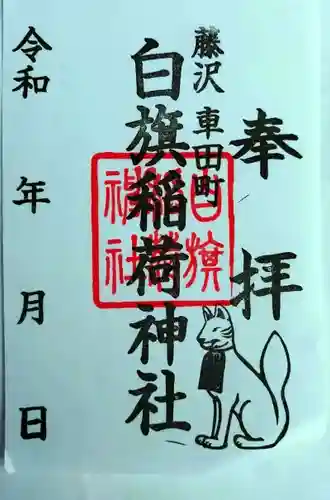 奉拝
藤沢 車田町
白旗稲荷神社
白旗稲荷神社
令和 年 月 日